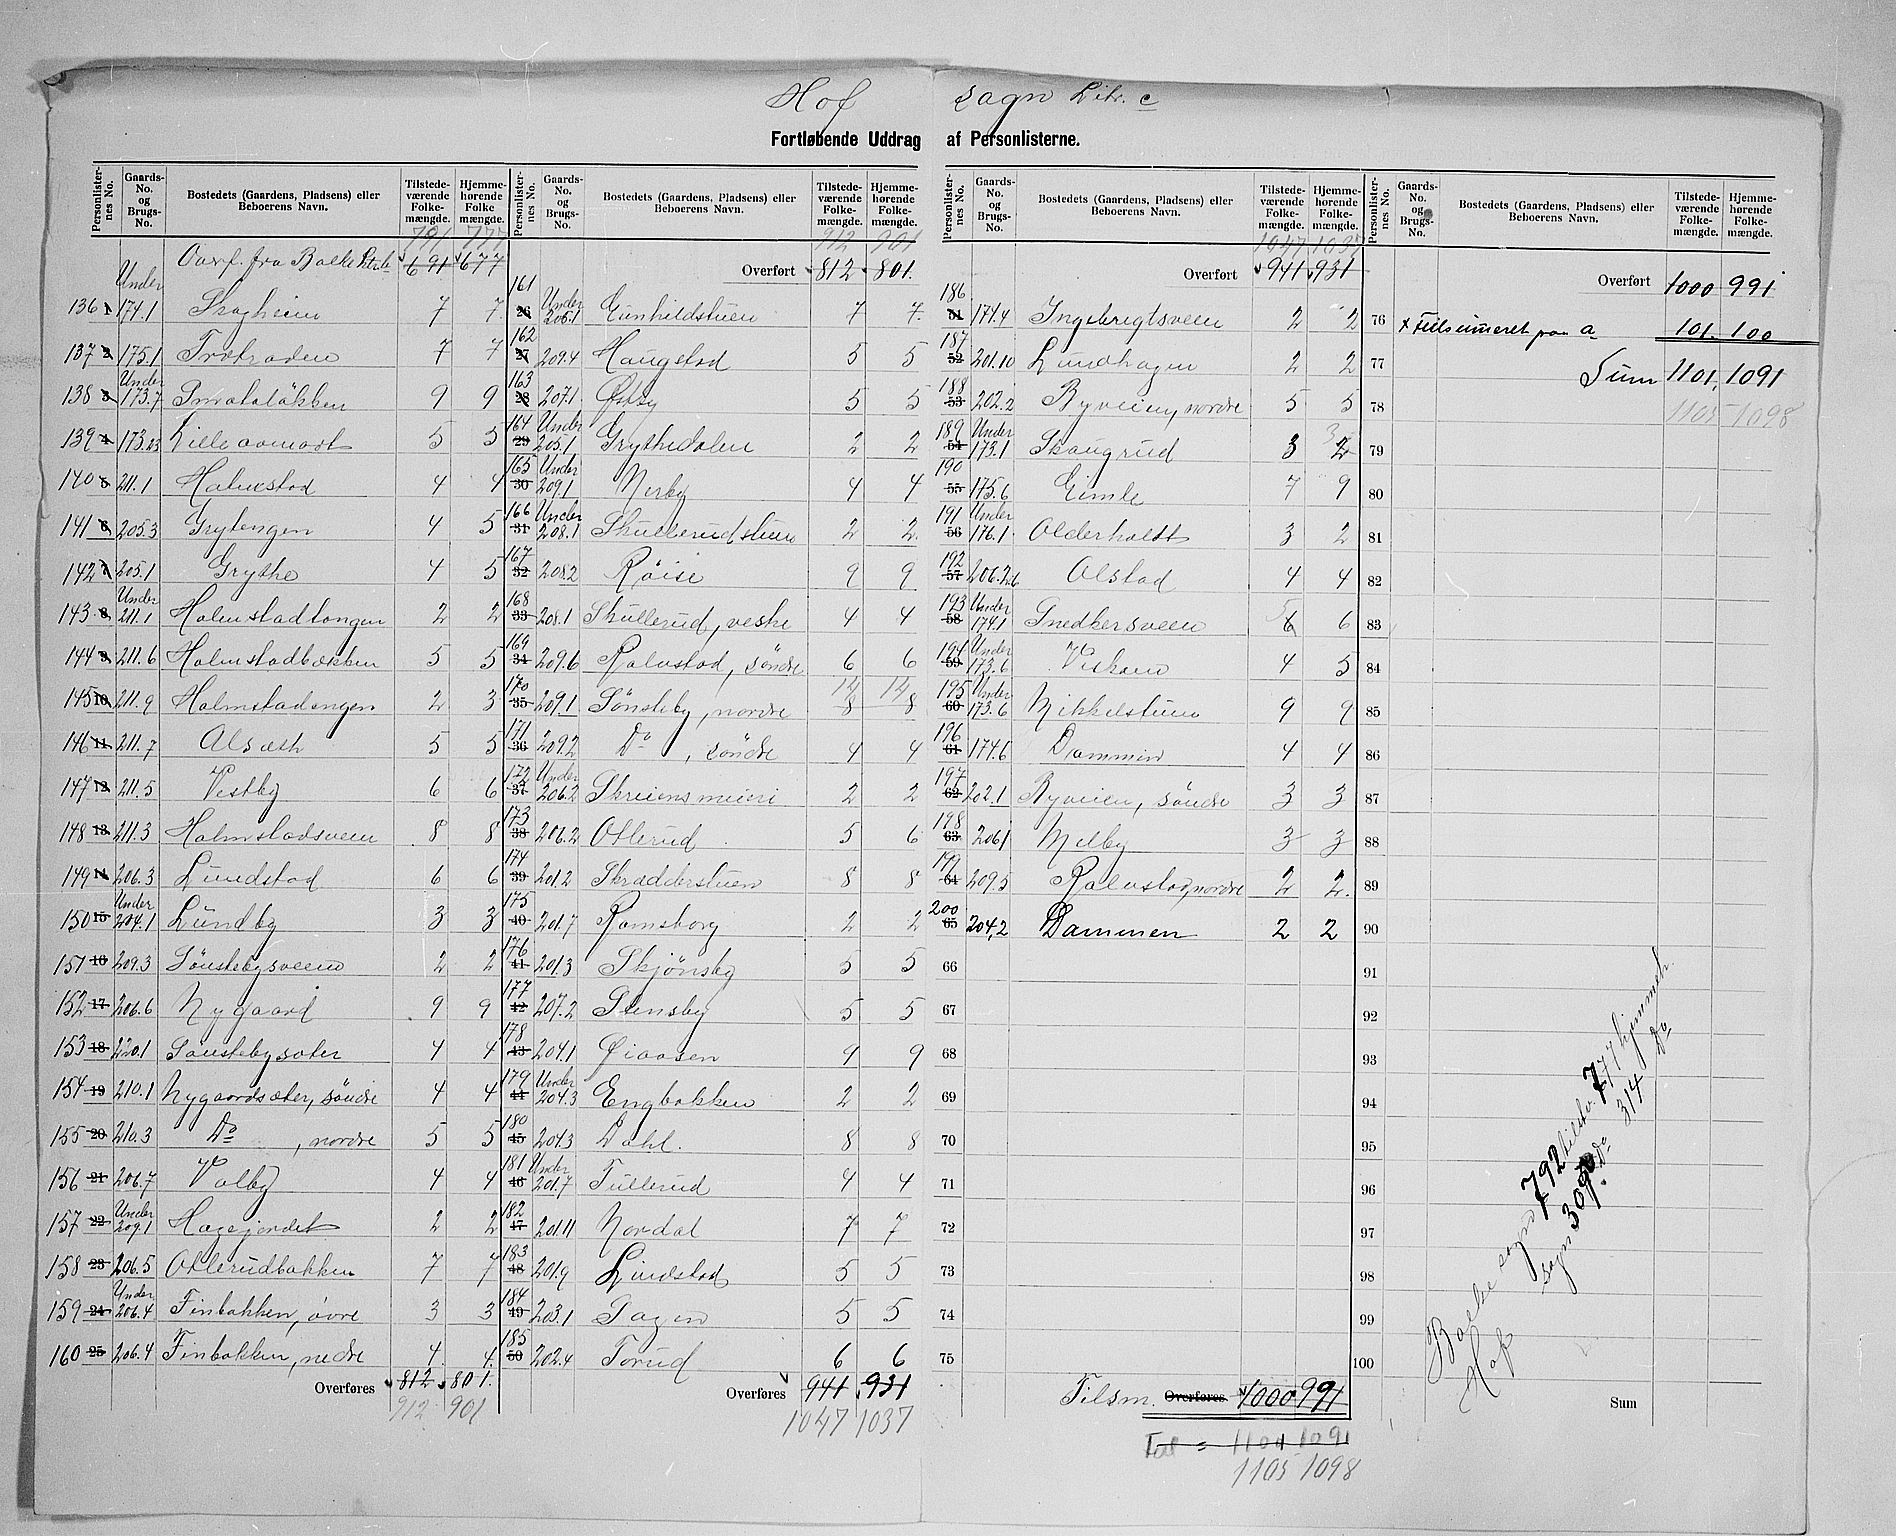 Hof sogn Litr. c
Fortløbende Uddrag af Personlisternе.
Personlister-nes No. Gaards-No. og Brugs-No. Bostedets (Gaardens, Pladsens) eller Beboerens Navn. Tilstede-værende Folke-mængde. Hjemme-hørende Folke mængde.
791 777
Overf. fra Balke 691 677
136 1 Under 174.1 Skogheim 7 7
137 2 175.1 7 7
138 3 Under 173.7 9 9
139 4 173.23 5 5
140 5 211.1 Holmstad 4 4
141 6 205.3 Grytengen 4 5
142 7 205.1 Grythe 4 5
143 8 Under 211.1 Holmstadtangen 2 2
144 9 211.6 Holmstadbakken 5 5
145 10 211.9 Holmstadengen 2 3
146 11 211.7 Alseth 5 5
147 12 211.5 Vestby 6 6
148 13 211.3 Holmstadsveen 8 8
149 14 206.3 Lundstad 6 6
150 15 Under 204.1 Lundby 3 3
151 16 209.3 Sønstebysveen 2 2
152 17 206.6 Nygaard 9 9
153 18 220.1 Sønstebysæter 4 4
154 19 210.1 Nygaardsæter, söndre 4 4
155 20 210.3 Do , nordre 5 5
156 21 206.7 Valby 4 4
157 22 Under 209.1 Hagejordet 2 2
158 23 206.5 Otterudbakken 7 7
159 24 Under 206.4 Finbakken, övre 3 3
160 25 206.4 Finbakken, nedre 4 4
Overføres 812 801
912 901
Personlister-nes No. Gaards-No. og Brugs-No. Bostedets (Gaardens, Pladsens) eller Beboerens Navn. Tilstede-værende Folke-mængde. Hjemme-hørende Folke-mængde.
912 901
Overført 812 801.
161 26 Under 205.1 Gunhildstuen 7 7
162 27 209.4 Haugstad 5 5
163 28 207.1 Østby 5 5
164 29 Under 205.1 Grythedalen 2 2
165 30 Under 209.1 Nerby 4 4
166 31 Under 208.1 Skullerudstuen 2 2
167 32 208.2 Röise 9 9
168 33 208.1 Skullerud, vestre 4 4
169 34 209.6 Rolvstad, söndre 6 6
14 14
170 35 209.1 Sønsteby, nordre 8 8
171 36 209.2 Do , söndre 4 4
172 37 Under 206.2 Skreiens meieri 2 2
173 38 206.2 Otterud 5 6
174 39 201.2 Skradderstuen 8 8
175 40 201.7 Ramsborg 2 2
176 41 201.3 Skjønsby 5 5
177 42 207.2 Stensby 5 5
178 43 204.1 Øiaasen 9 9
179 44 Under 204.3 Engbakken 2 2
180 45 204.3 Dahl. 8 8
181 46 Under 201.7 Fullerud 4 4
182 47 201.11 Nordal 7 7
183 48 201.9 Lindstad 5 5
184 49 203.1 5 5
185 50 202.4 Torud 6 6
Overføres 941 931
1047 1037
Personlister-nes No. Gaards-No. og Brugs-No. Bostedets (Gaardens, Pladsens) eller Beboerens Navn. Tilstede-værende Folke-mængde. Hjemme-hørende Folke-mængde.
1047 1037
Overført 941 931
186 51 174.4 Ingebrigtsveen 2 2
187 52 201.10 Lundhagen 2 2
188 53 202.2 Ryveien, nordre 5 5
189 54 Under 173.1 Skaugrud 3 3 2
190 55 175.6 Gimle 7 9
191 56 Under 176.1 Olderholdt 3 2
192 57 206.26 Olstad 4 4
193 58 Under 174.1 Snedkersveen 5 6 6
194 59 Under 173.6 4 5
195 60 Under 173.6 Mikkelstuen 9 9
196 61 174.6 Dammen 4 4
197 62 202.1 Ryveien, söndre 3 3
198 63 206.1 Melby 3 3
199 64 209.5 Rolvstad, nordre 2 2.
200 65 204,2 Dammen 2 2
66
67
68
69
70
71
72
73
74
75
Tilsm. Overføres 1000 991
Tol = 1101 1091
1105 1098
Personlister-nes No. Gaards-No. og Brugs-No. Bostedets (Gaardens, Pladsens) eller Beboerens Navn. Tilstede-værende Folke-mængde. Hjemme-hørende Folke-mængde.
Overført 1000 991
76 x Feilsumeret paa a 101. 100
77 Sum 1101, 1091
78 1105 1098
79
80
81
82
83
84
85
86
87
88
89
90
91
92
93
94
95
96
97
98
99
100
Sum
Balke sogn 792 tilstv. 777 hjemmeh.
Hof sogn 309 do 314 Do